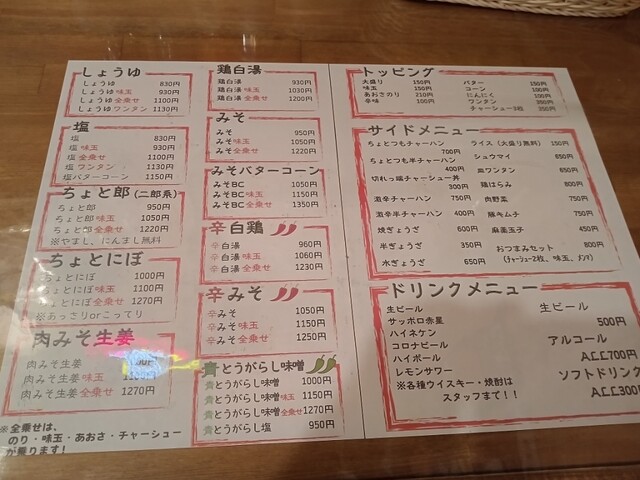 しょうゆ
しょうゆ 830円
しょうゆ 味玉 930円
しょうゆ 全乗せ 1100円
しょうゆ ワンタン 1130円
塩
塩 830円
塩 味玉 930円
塩 全乗せ 1100円
塩 ワンタン 1130円
塩バターコーン 1150円
ちょと郎(二郎系)
ちょと郎 950円
ちょと郎味玉 1050円
ちょと郎全乗せ 1220円
※やすし、にんまし無料
ちょとにぼ
ちょとにぼ 1000円
ちょとにぼ味玉 1100円
ちょとにぼ全乗せ 1270円
※あっさりorこってり
肉みそ生姜
肉みそ生姜
肉みそ生姜 味玉
肉みそ生姜全乗せ 1270円
※全乗せは、
のり・味玉・あおさ・チャーシュー
が乗ります!
鶏白湯
鶏白湯 930円
鶏白湯 味玉 1030円
鶏白湯 全乗せ 1200円
みそ
みそ 950円
みそ 味玉 1050円
みそ 全乗せ 1220円
みそバターコーン
みそBC 1050円
みそBC 味玉 1150円
みそBC 全乗せ 1350円
辛白鶏
辛白湯 960円
辛白湯 味玉 1060円
辛白湯 全乗せ 1230円
辛みそ
辛みそ 1050円
辛みそ 味玉 1150円
辛みそ 全乗せ 1250円
青とうがらし味噌
青とうがらし味噌 1000円
青とうがらし味噌味玉 1150円
青とうがらし味噌全乗せ 1270円
青とうがらし塩 950円
トッピング
大盛り 150円
味玉 150円
あおさのり 210円
辛味 100円
バター 150円
コーン 100円
にんにく 100円
ワンタン 350円
チャーシュー3枚 350円
サイドメニュー
ちょとつもチャーハン 700円
ちょとつも半チャーハン 400円
切れっ端チャーシュー丼 300円
激辛チャーハン 750円
激辛半チャーハン 400円
焼ぎょうざ 600円
半ぎょうざ 350円
水ぎょうざ 650円
ライス(大盛り無料) 150円
シュウマイ 650円
皿ワンタン 650円
鶏はらみ 800円
肉野菜 750円
豚キムチ 750円
麻薬玉子 450円
おつまみセット 800円
(チャーシュー2枚、味玉、メンマ)
ドリンクメニュー
生ビール
サッポロ赤星
ハイネケン
コロナビール
ハイボール
レモンサワー
※各種ウイスキー・焼酎は
スタッフまで!!
生ビール
500円
アルコール
ALL700円
ソフトドリンク
ALL300円